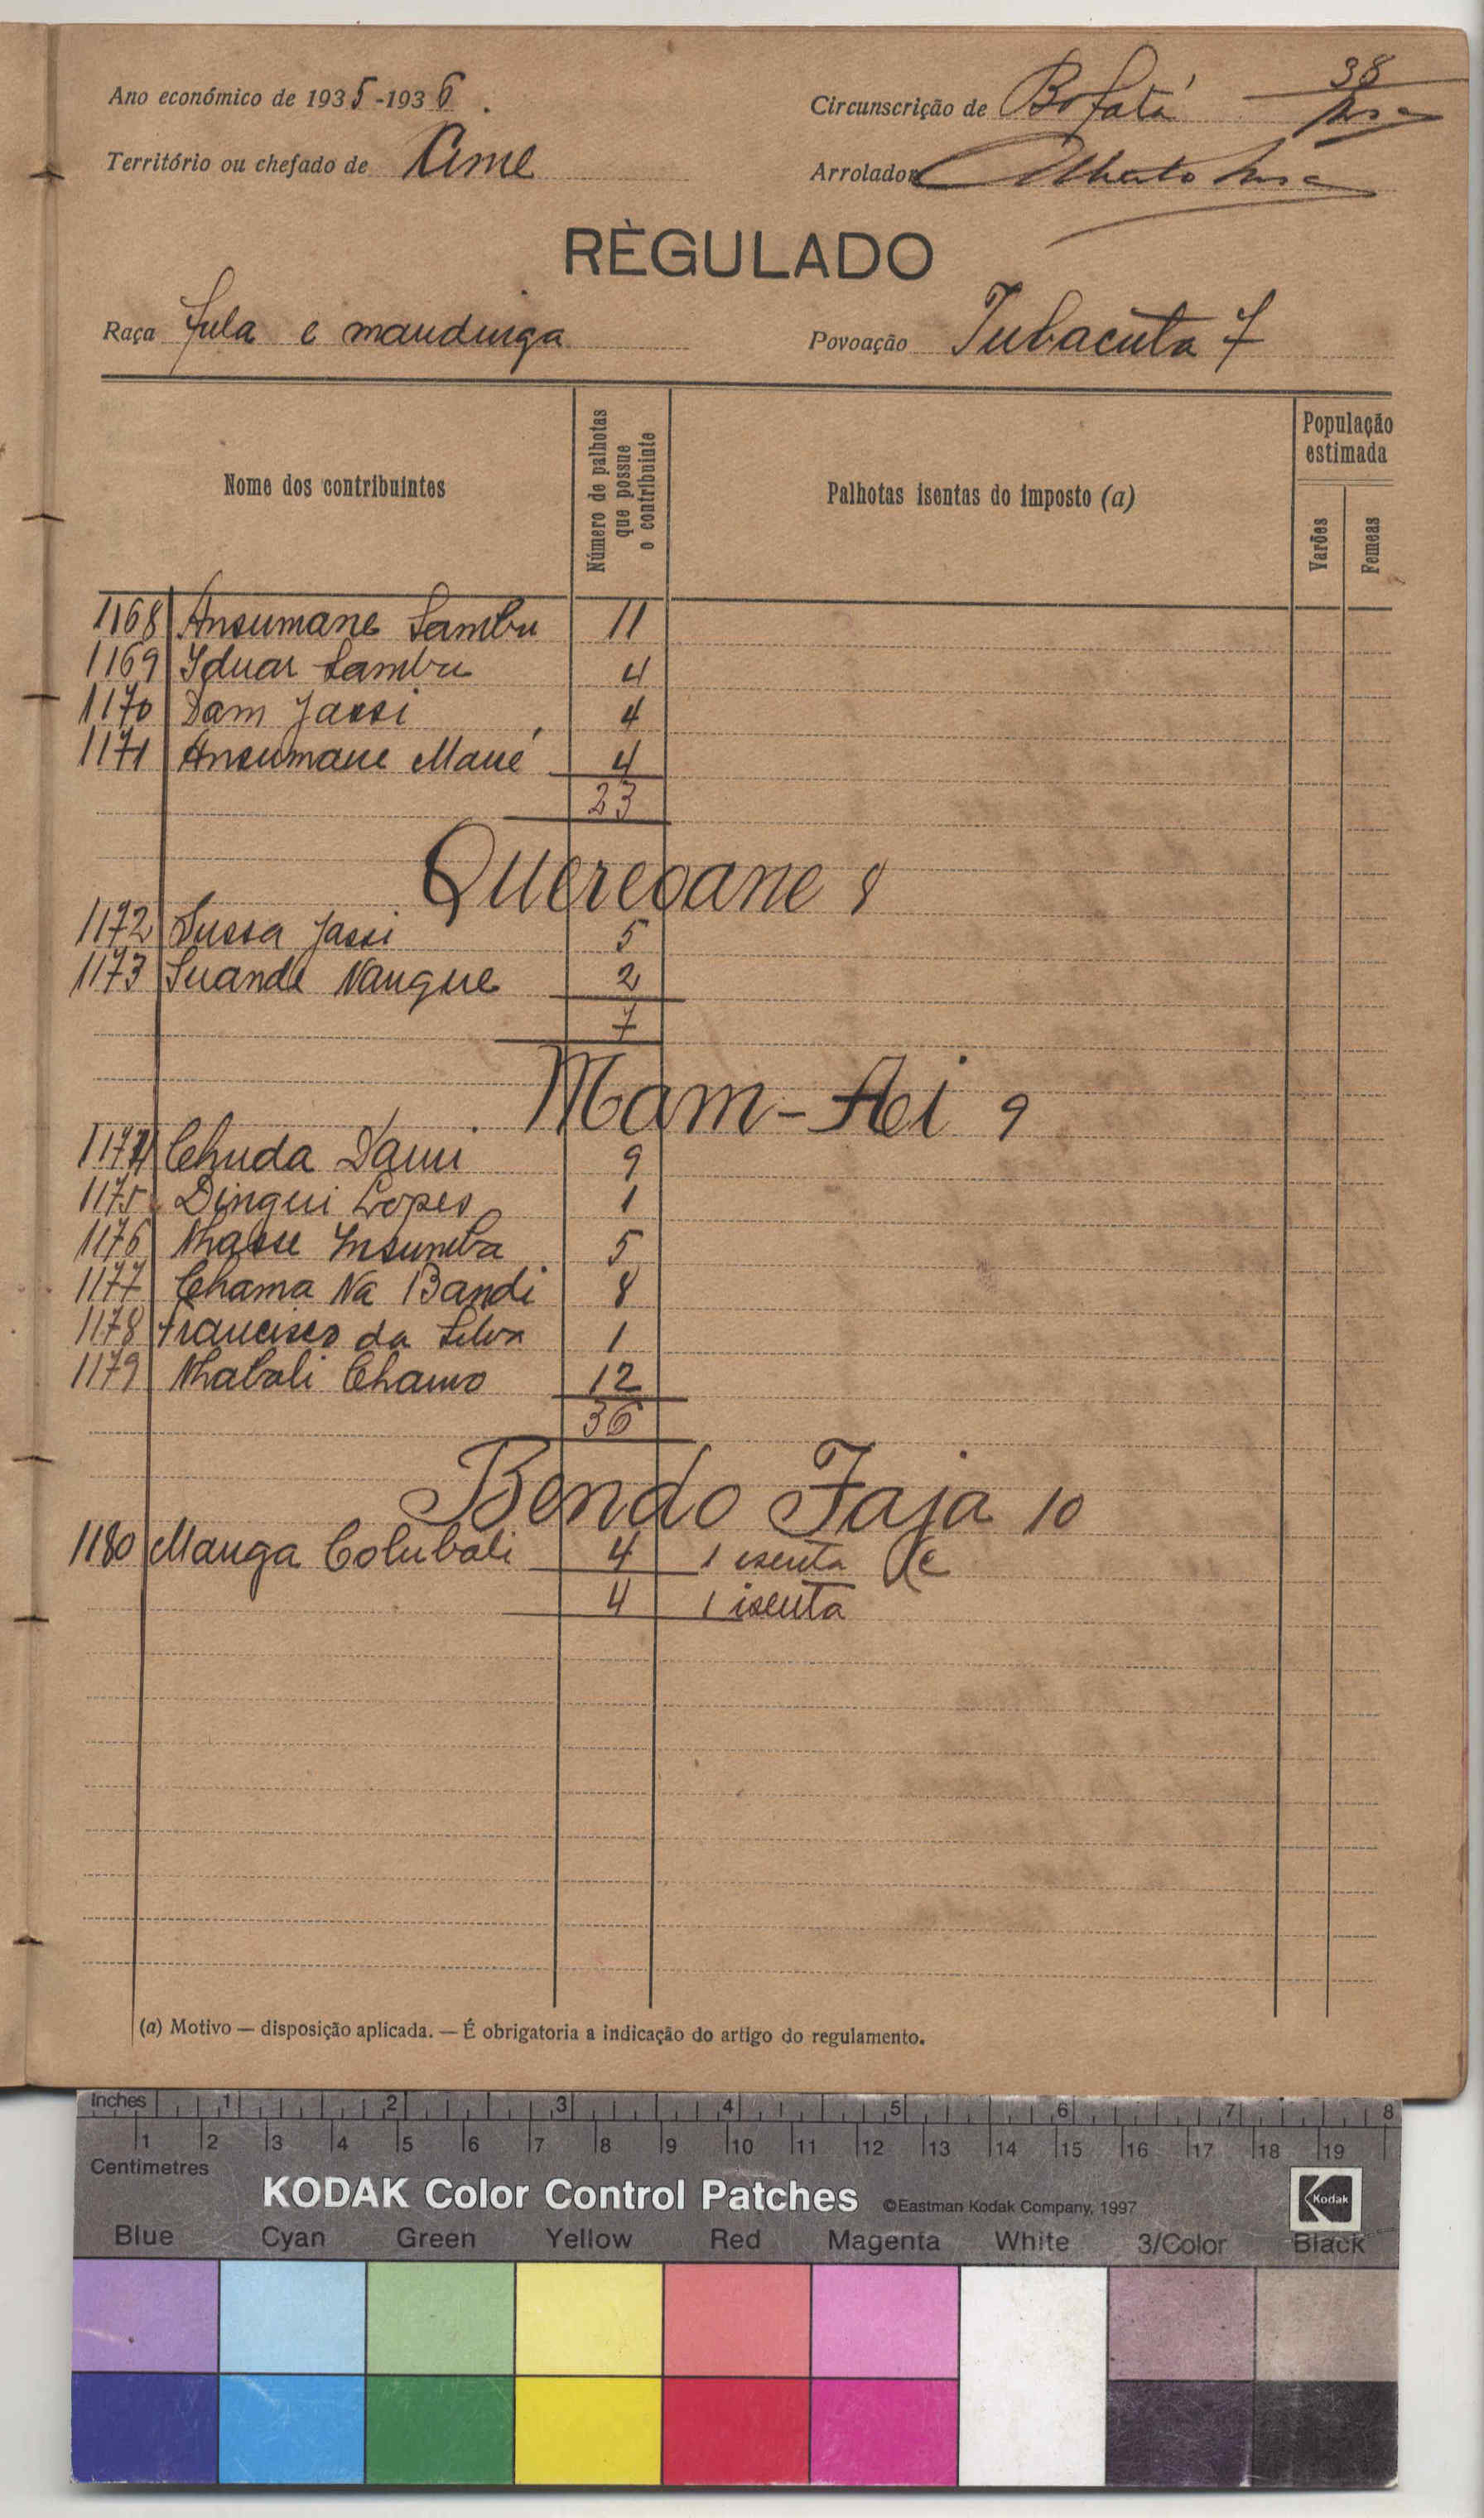 Ano económico de 1935-1936.
Circunscrição de Bafatá 38
Território ou chefado de Cime
Arrolador Alberto
RÈGULADO
Raça fula e mandinga
Povoação Tubacuta 7
Nome dos contribuintes
Número de palhotas que possue o contribuinte
Palhotas isentas do imposto (a)
População estimada
Varões
Femeas
1168 Ansumane Sambu 11
1169 Iduar Sambu 4
1170 Dam Jassi 4
1171 Ansumane Mané 4
23
Quereoane 8
1172 Sussa Jassi 5
1173 Suande Nangue 2
7
Mam-Aei 9
1174 Chuda Dami 9
1175 Dingui Lopes 1
1176 Nhasse Insumba 5
1177 Chama Na Bandi 8
1178 Francisco da Silva 1
1179 Nhabali Chamo 12
36
Bendo Jaja 10
1180 Manga Colubali 4 1 isenta
4 1 isenta
(a) Motivo — disposição aplicada. — É obrigatoria a indicação do artigo do regulamento.
Inches 1 2 3 4 5 6 7 8
1 2 3 4 5 6 7 8 9 10 11 12 13 14 15 16 17 18 19
Centimetres
KODAK Color Control Patches ©Eastman Kodak Company, 1997 Kodak
Blue Cyan Green Yellow Red Magenta White 3/Color Black